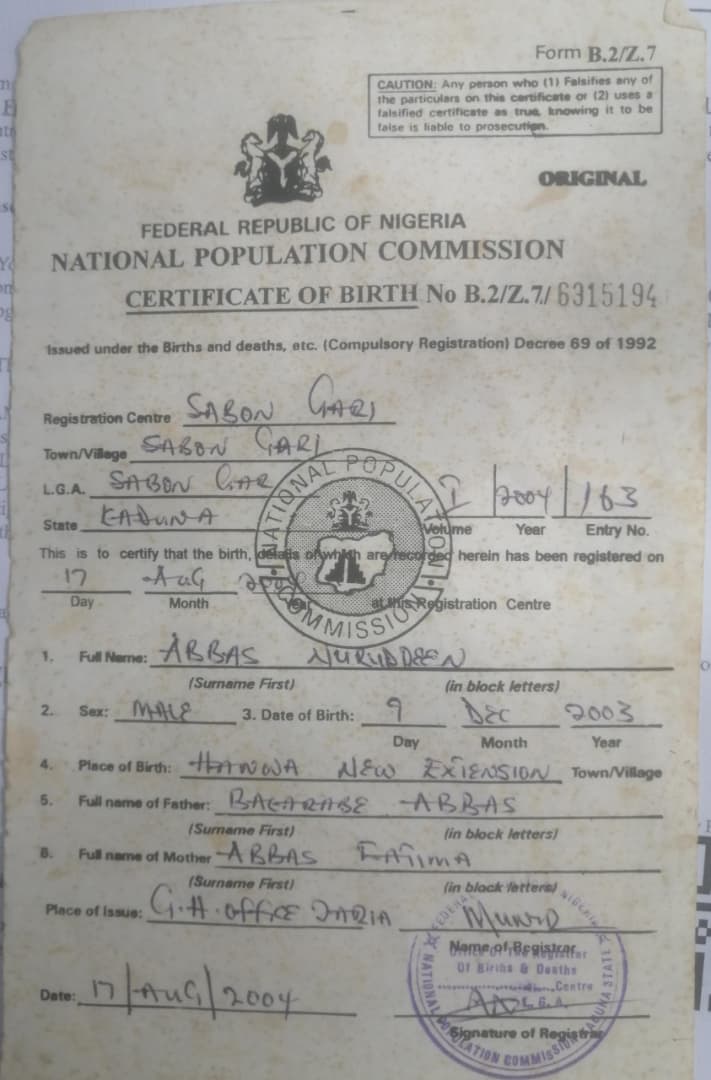 Form B.2/Z.7
CAUTION: Any person who (1) Falsifies any of
the particulars on this certificate or (2) uses a
falsified certificate as true, knowing it to be
false is liable to prosecution.
ORIGINAL
FEDERAL REPUBLIC OF NIGERIA
NATIONAL POPULATION COMMISSION
CERTIFICATE OF BIRTH No B.2/Z.7/ 6315194
Issued under the Births and deaths, etc. (Compulsory Registration) Decree 69 of 1992
Registration Centre SABON GARI
Town/Village SABON GARI
L.G.A. SABON GAR
State KADUNA
I 2004 163
Volume Year Entry No.
NATIONAL POPULATION COMMISSION
This is to certify that the birth, details of which are recorded herein has been registered on
17 AUG 2004
Day Month Year at this Registration Centre
1. Full Name: ABBAS NURUDDEEN
(Surname First) (in block letters)
2. Sex: MALE 3. Date of Birth: 9 DEC 2003
Day Month Year
4. Place of Birth: HANWA NEW EXTENSION Town/Village
5. Full name of Father: BAGARABE ABBAS
(Surname First) (in block letters)
6. Full name of Mother ABBAS FATIMA
(Surname First) (in block letters)
Place of Issue: G.H. OFFICE ZARIA
Name of Registrar
Office Of The Registrar
Of Births & Deaths
Centre
L.G.A.
Date: 17/AUG/2004
Signature of Registrar
NATIONAL POPULATION COMMISSION KADUNA STATE